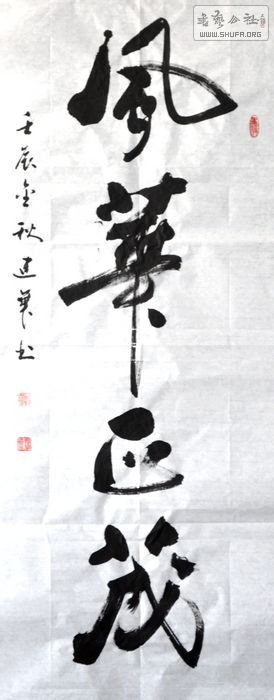 風華正茂
壬辰金秋建華书
书艺公社
WWW.SHUFA.ORG